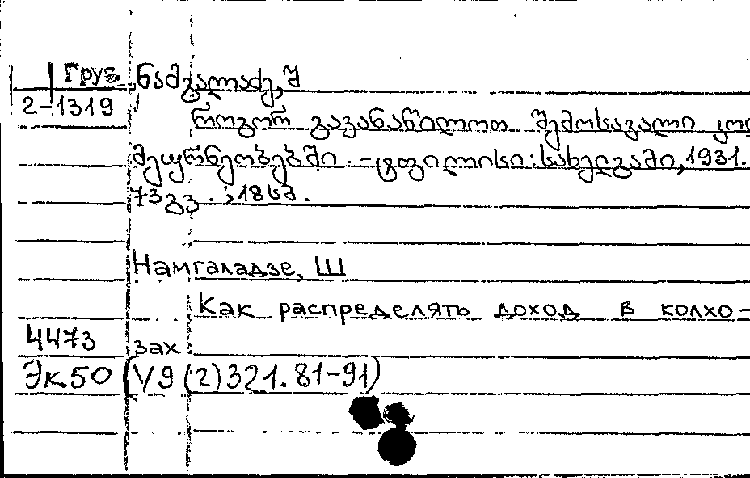 Груз. ნამგალაძე, შ
2-1319
როგორ გავანაწილოთ შემოსავალი კოლ
მეურნეობებში. - ტფილისი: სახელგამი, 1931. -
73 გვ. ; 18 სმ.
Намгаладзе, Ш
Как распределять доход в колхо-
4473 зах
Эк50 (У9(2)321.81-91)